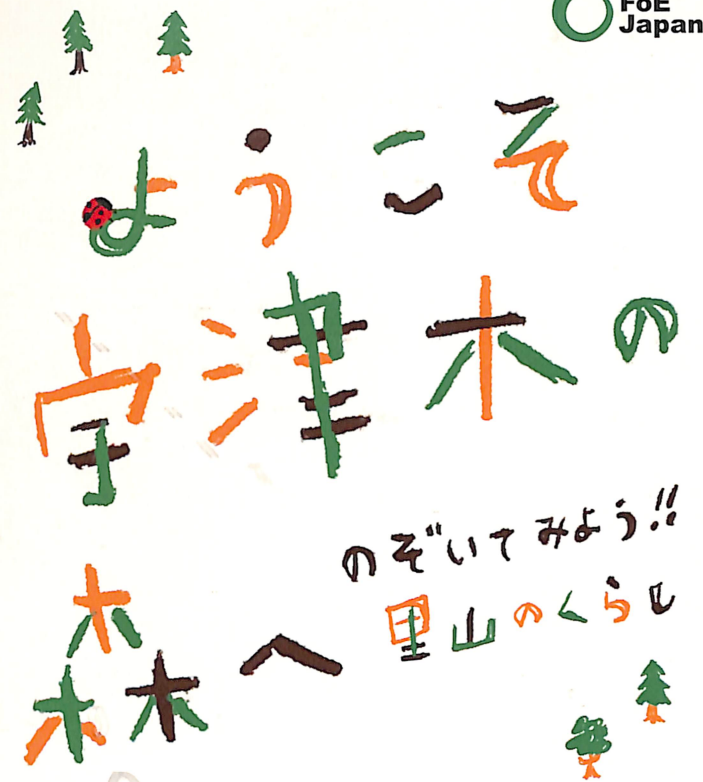 FoE
Japan
ようこそ
宇津木の
森へ
のぞいてみよう!!
里山のくらし